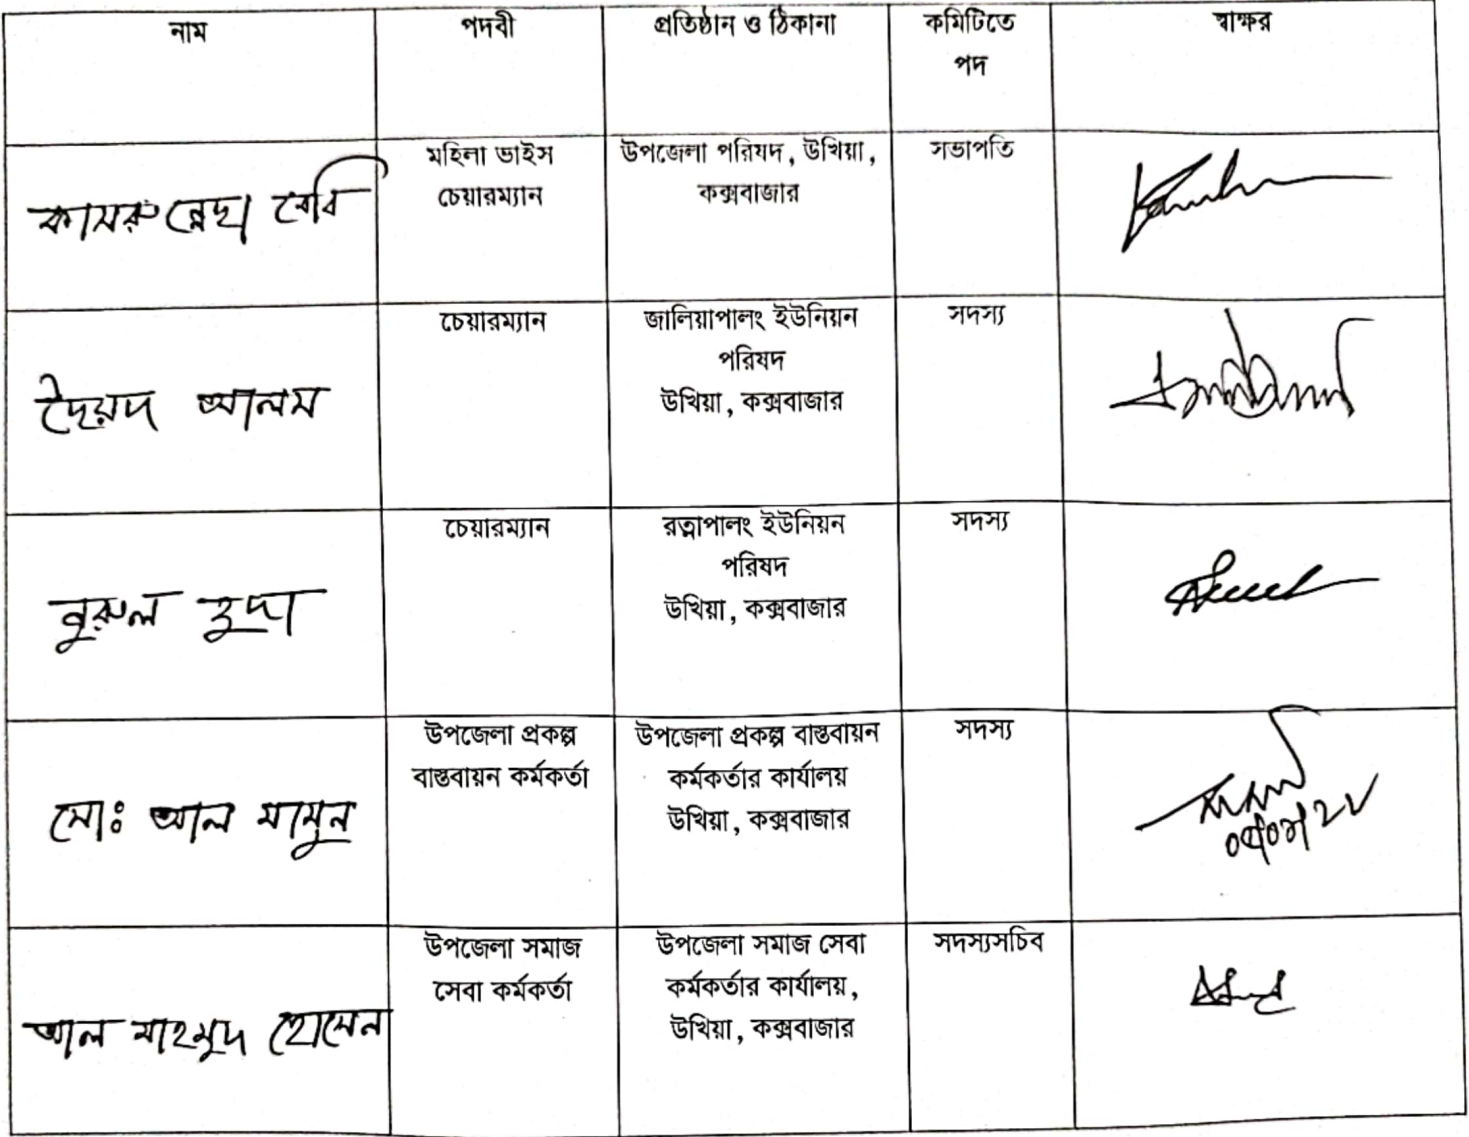 নাম পদবী প্রতিষ্ঠান ও ঠিকানা কমিটিতে পদ স্বাক্ষর
কামরুন্নেছা বেবি
মহিলা ভাইস
চেয়ারম্যান
উপজেলা পরিষদ, উখিয়া,
কক্সবাজার
সভাপতি
সৈয়দ আলম
চেয়ারম্যান
জালিয়াপালং ইউনিয়ন
পরিষদ
উখিয়া, কক্সবাজার
সদস্য
নুরুল হুদা
চেয়ারম্যান
রত্নাপালং ইউনিয়ন
পরিষদ
উখিয়া, কক্সবাজার
সদস্য
মোঃ আল মামুন
উপজেলা প্রকল্প
বাস্তবায়ন কর্মকর্তা
উপজেলা প্রকল্প বাস্তবায়ন
কর্মকর্তার কার্যালয়
উখিয়া, কক্সবাজার
সদস্য
আল মাহমুদ হোসেন
উপজেলা সমাজ
সেবা কর্মকর্তা
উপজেলা সমাজ সেবা
কর্মকর্তার কার্যালয়,
উখিয়া, কক্সবাজার
সদস্যসচিব